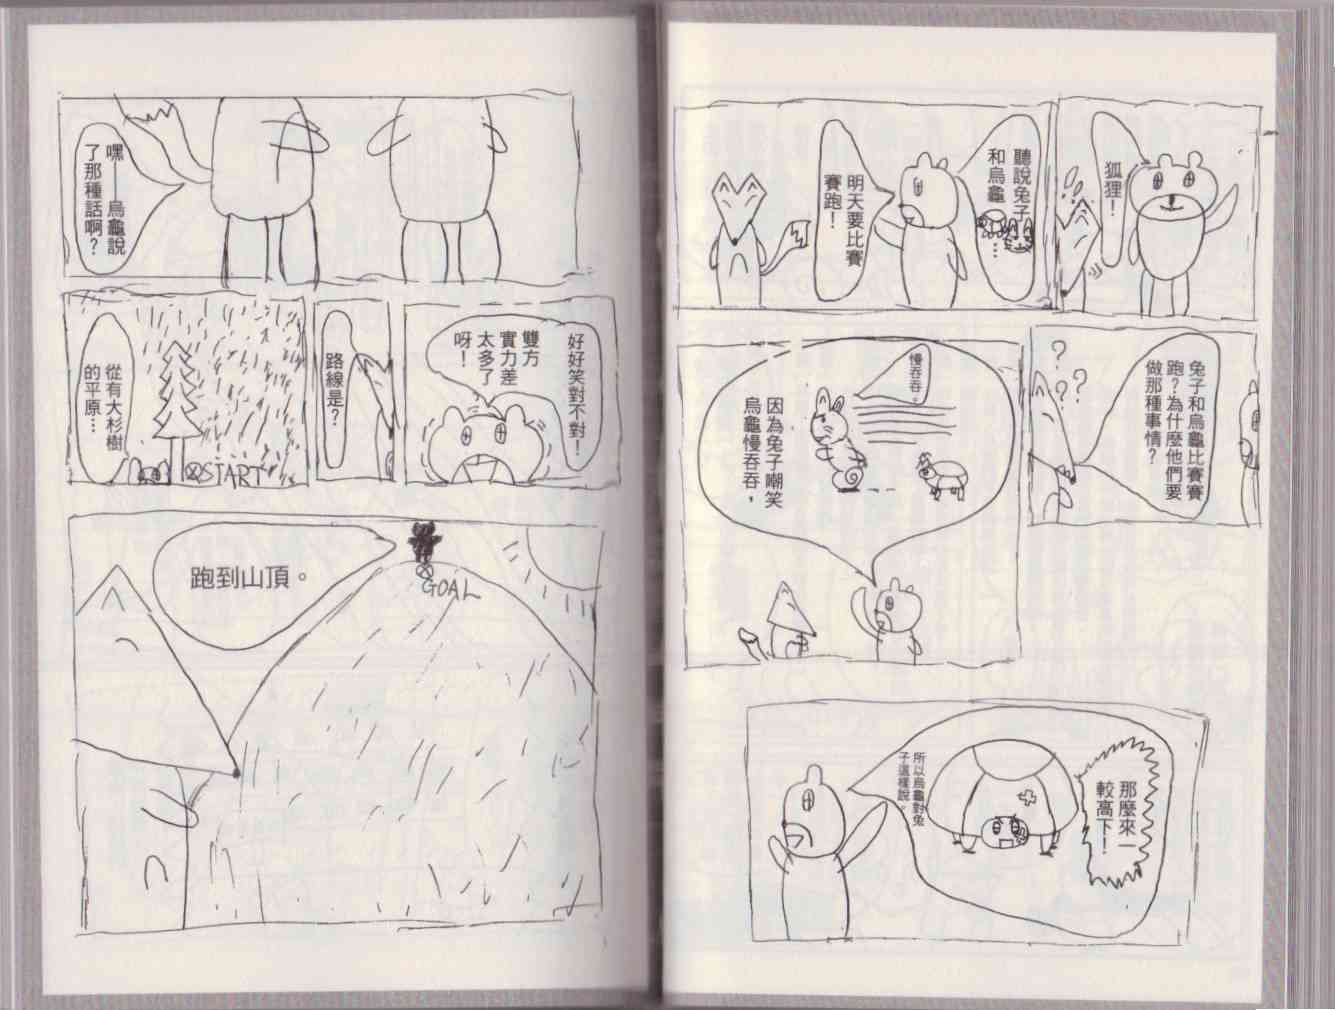 狐狸！
聽說兔子
和烏龜
…
明天要比賽
賽跑！
兔子和烏龜比賽賽
跑？為什麼他們要
做那種事情？
？
？？
慢吞吞。
因為兔子嘲笑
烏龜慢吞吞，
那麼來一
較高下！
所以烏龜對兔
子這樣說。
嘿——烏龜說
了那種話啊？
好好笑對不對！
雙方
實力差
太多了
呀！
路線是？
START
從有大杉樹
的平原…
跑到山頂。
GOAL